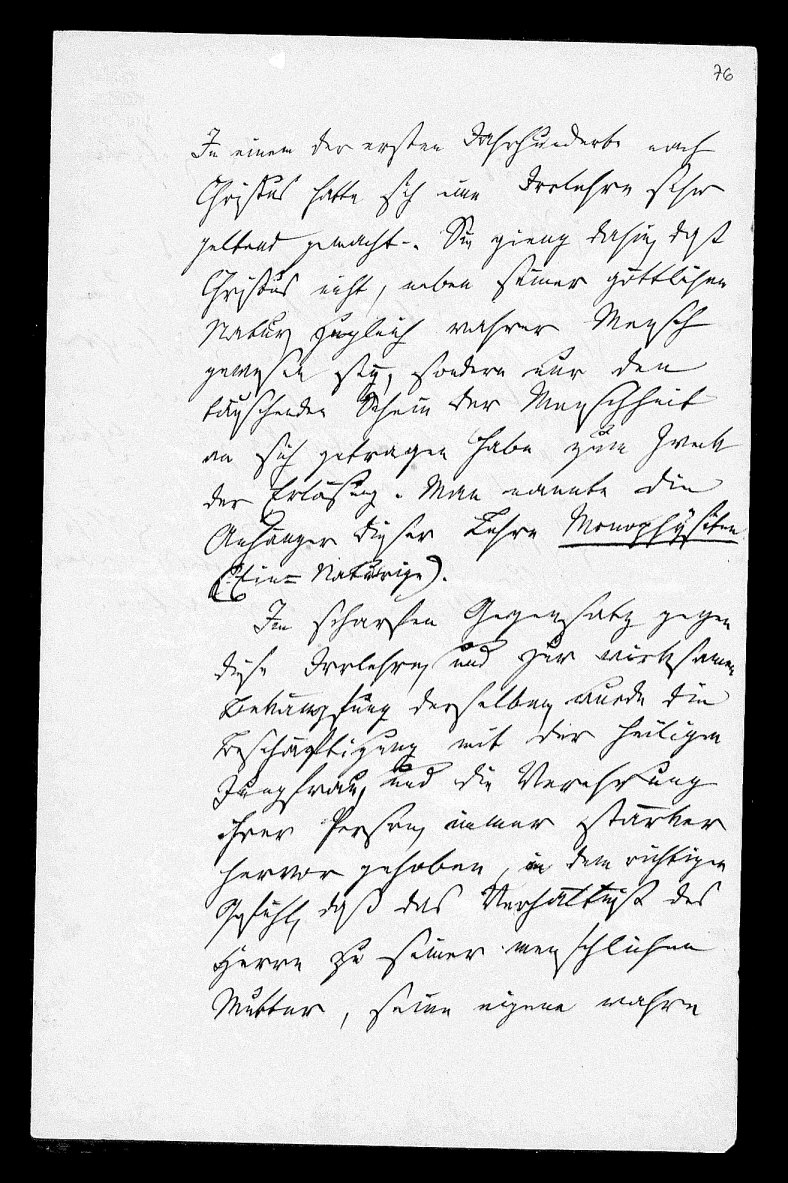 76
In einem der ersten Jahrhunderte nach
Christus hatte sich eine Irrlehre sehr
geltend gemacht. Sie gieng dahin, daß
Christus nicht, neben seiner göttlichen
Natur, zugleich wahrer Mensch
gewesen sey, sondern nur den
täuschenden Schein der Menschheit
an sich getragen habe zum Zweck
der Erlösung. Man nannte die
Anhänger dieser Lehre Monophysiten
(Ein=Naturige).
Im scharfen Gegensatz gegen
diese Irrlehre, und zur wirksamen
Bekämpfung derselben, wurde die
Beschäftigung mit der heiligen
Jungfrau, und die Verehrung
ihrer Person, immer stärker
hervor gehoben, in dem richtigen
Gefühl, daß das Verhältniß des
Herrn zu seiner menschlichen
Mutter, seine eigene wahre